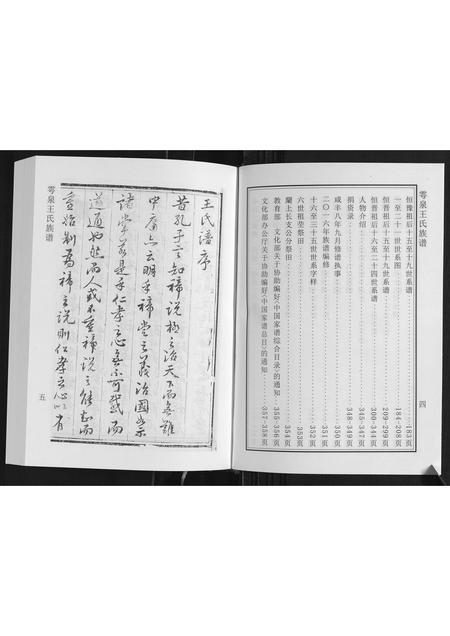 零泉王氏族谱
四
恒豫祖后十五至十九世系谱……183页
一至二十一世世系图……184-208页
恒晋祖后十五至十九世系谱……209-299页
恒晋祖后十六至二十四世系谱……300-344页
人物介绍……345-347页
捐资录……348-349页
咸丰八年九月修谱执事……350页
二〇一六年族谱编修……351页
十六至三十五世世系字样……352页
四世祖茔祭田……353页
兰上长支公分祭田……354页
教育部 文化部关于协助编好《中国家谱综合目录》的通知……355-356页
文化部办公厅关于协助编好《中国家谱总目》的通知……357-358页
王氏谱序
昔孔子言知禘说推之治天下而无难
中庸亦云明乎禘尝之义治国如示
诸掌若是乎仁孝之心无不可感而
遂通也然而人或不重禘说之能动而
禘之说则仁孝之心有
零泉王氏族谱
五